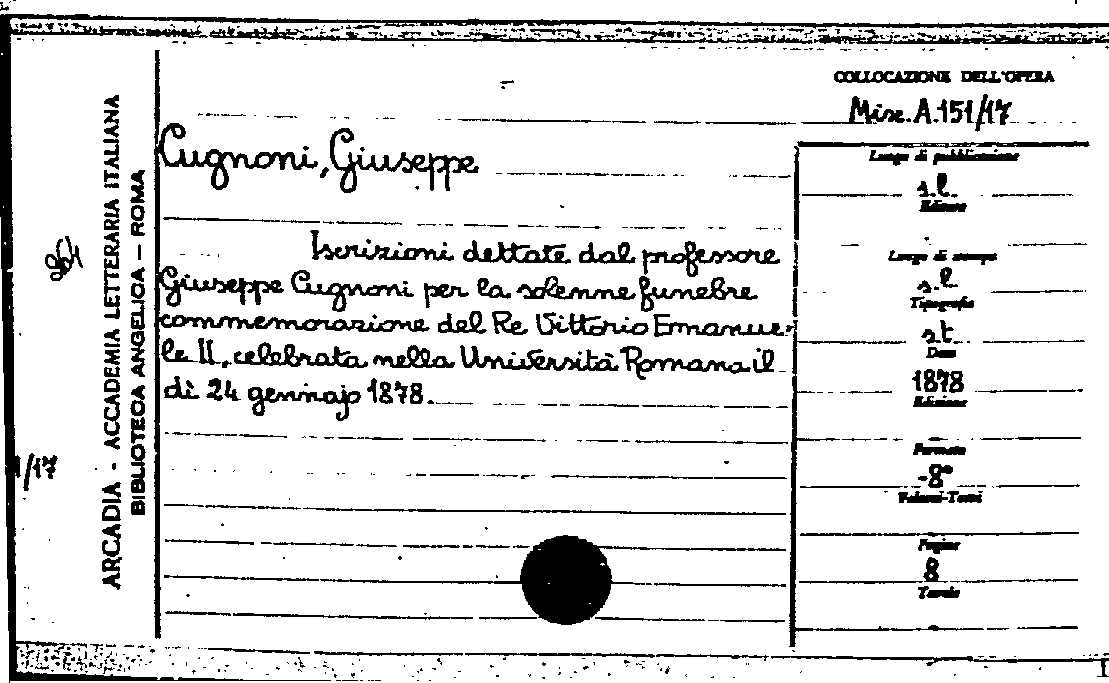 COLLOCAZIONE DELL'OPERA
Misc. A. 151/17
Cugnoni, Giuseppe
Iscrizioni dettate dal professore
Giuseppe Cugnoni per la solenne funebre
commemorazione del Re Vittorio Emanue-
le II, celebrata nella Università Romana il
dì 24 gennajo 1878.
Luogo di pubblicazione
s.l.
Editore
-
Luogo di stampa
s.l.
Tipografia
s.t.
Data
1878
Edizione
-
Formato
-8°
Volumi-Tomi
-
Pagine
8
Tavole
-
ARCADIA - ACCADEMIA LETTERARIA ITALIANA
BIBLIOTECA ANGELICA — ROMA
1/17